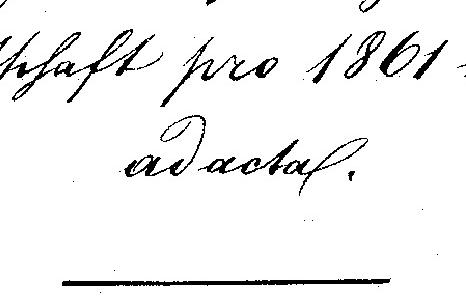 schaft pro 1861
ad acta.